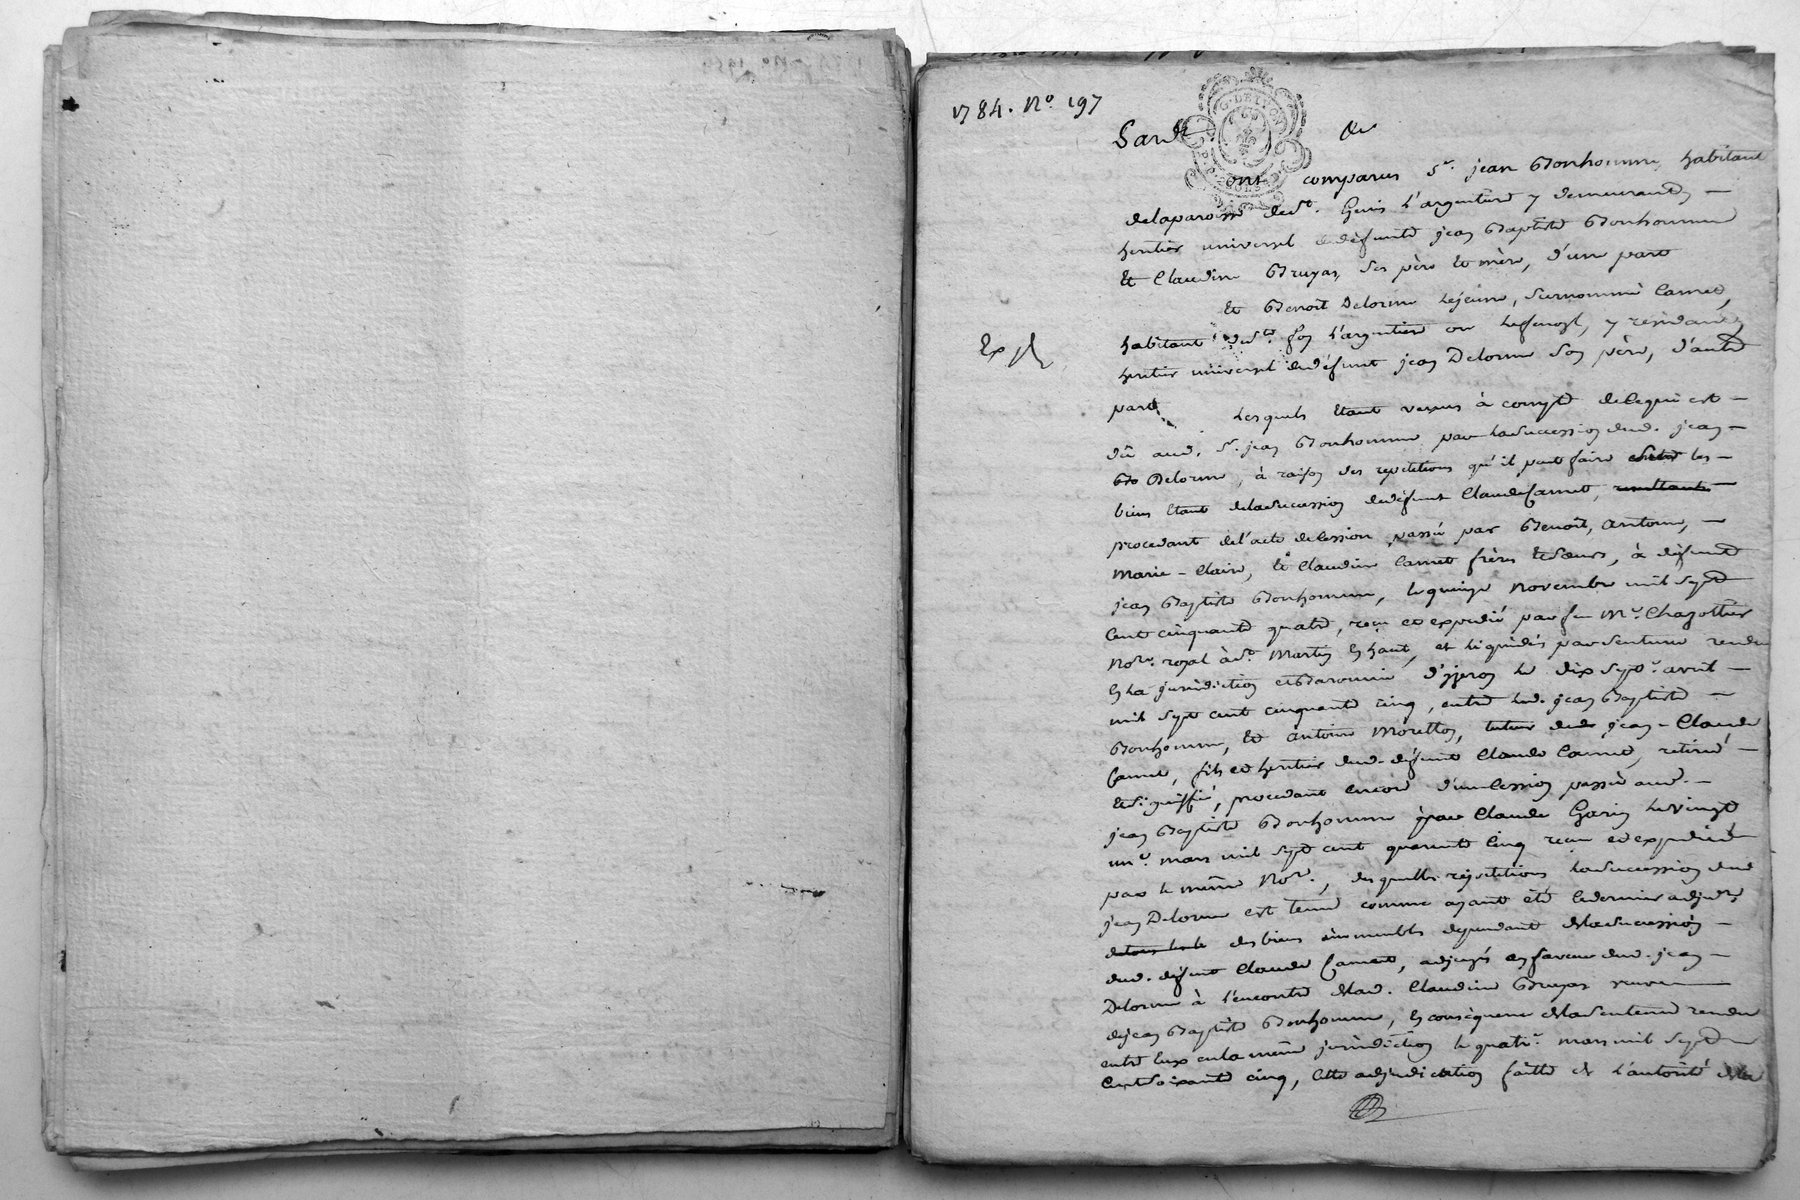 1784. No. 197
G. DE LYON
Pardt &c
ont comparus Sr. jean Bonhomme, habitant
delaparoisse dest. Genis L'argentiere y demeurant, —
heritier universel dedéfunts jean Baptiste Bonhomme
et Claudine Bruyas, ses père et mère, d'une part
Et Benoît Delorme Lejeune, surnommé Carret,
habitant dudt. L'argentiere y residant,
heritier universel dudéfunt jean Delorme son père, d'autre
part.
Lesquels étant venus à compte delequi est —
dû aud. Sr. jean Bonhomme par lasuccession dud. jean —
Delorme, à raison des repetitions qu'il peut faire les —
biens étant delasuccession dudéfunt Claude Carret, resultants —
procedant del'acte decession passé par Benoit, antoine, —
Marie - Claire, et Claudine Carret frères et sœurs, à défunt
jean Baptiste Bonhomme, le quinze novembre mil sept
cent cinquante quatre, reçu et expedié par feu Me. Chazottier
Nore. royal à st. Martin en haut, et liquidés par sentence rendue
en la jurisdiction et Baronnie d'yzeron le dix sept. avril —
mil sept cent cinquante cinq, entre led. jean Baptiste —
Bonhomme, et antoine Moretton, tuteur dud. jean - Claude
Carret, fils et heritier dud. défunt Claude Carret, retiré —
et signiffié, procedant encore d'une cession passée aud. —
jean Baptiste Bonhomme par Claude Garin le vingt
un. mars mil sept cent quarante cinq reçue et expediée
par le même Nore., desquelles répétitions lasuccession dud.
jean Delorme est tenue comme ayant été ledernier adjudre.
des biens immeubles dependant delasuccession —
dud. défunt Claude Carret, adjugés en faveur dud. jean —
Delorme à l'encontre delad. Claudine Bruyas veuve
dejean Baptiste Bonhomme, en consequence delasentence rendue
entre eux enla même jurisdiction le quatre. mars mil sept
cent soixante cinq, cette adjudication faitte de L'autorité dela
Exp